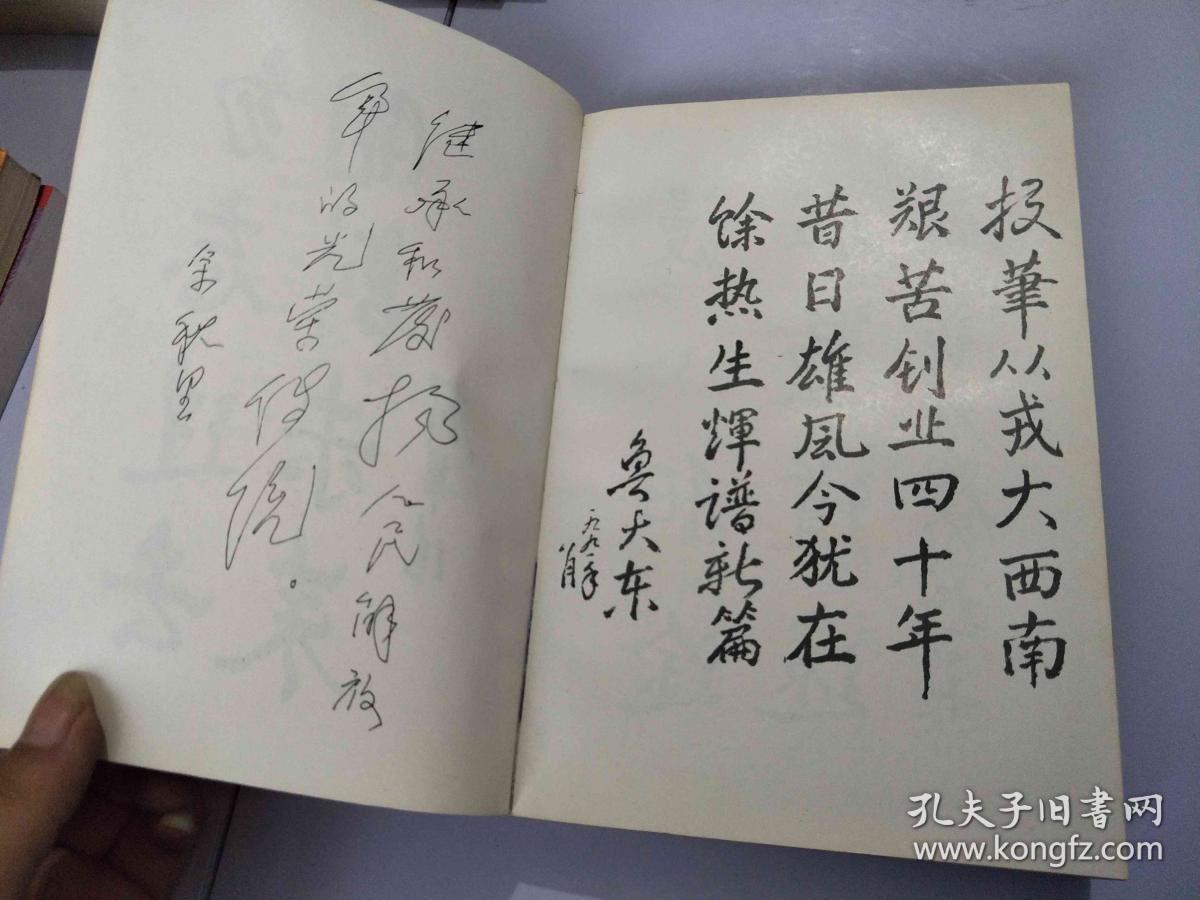 继承和发扬人民解放
军的光荣传统。
余秋里
投筆从戎大西南
艰苦创业四十年
昔日雄风今犹在
馀热生輝谱新篇
鲁大东
孔夫子旧書网
www.kongfz.com